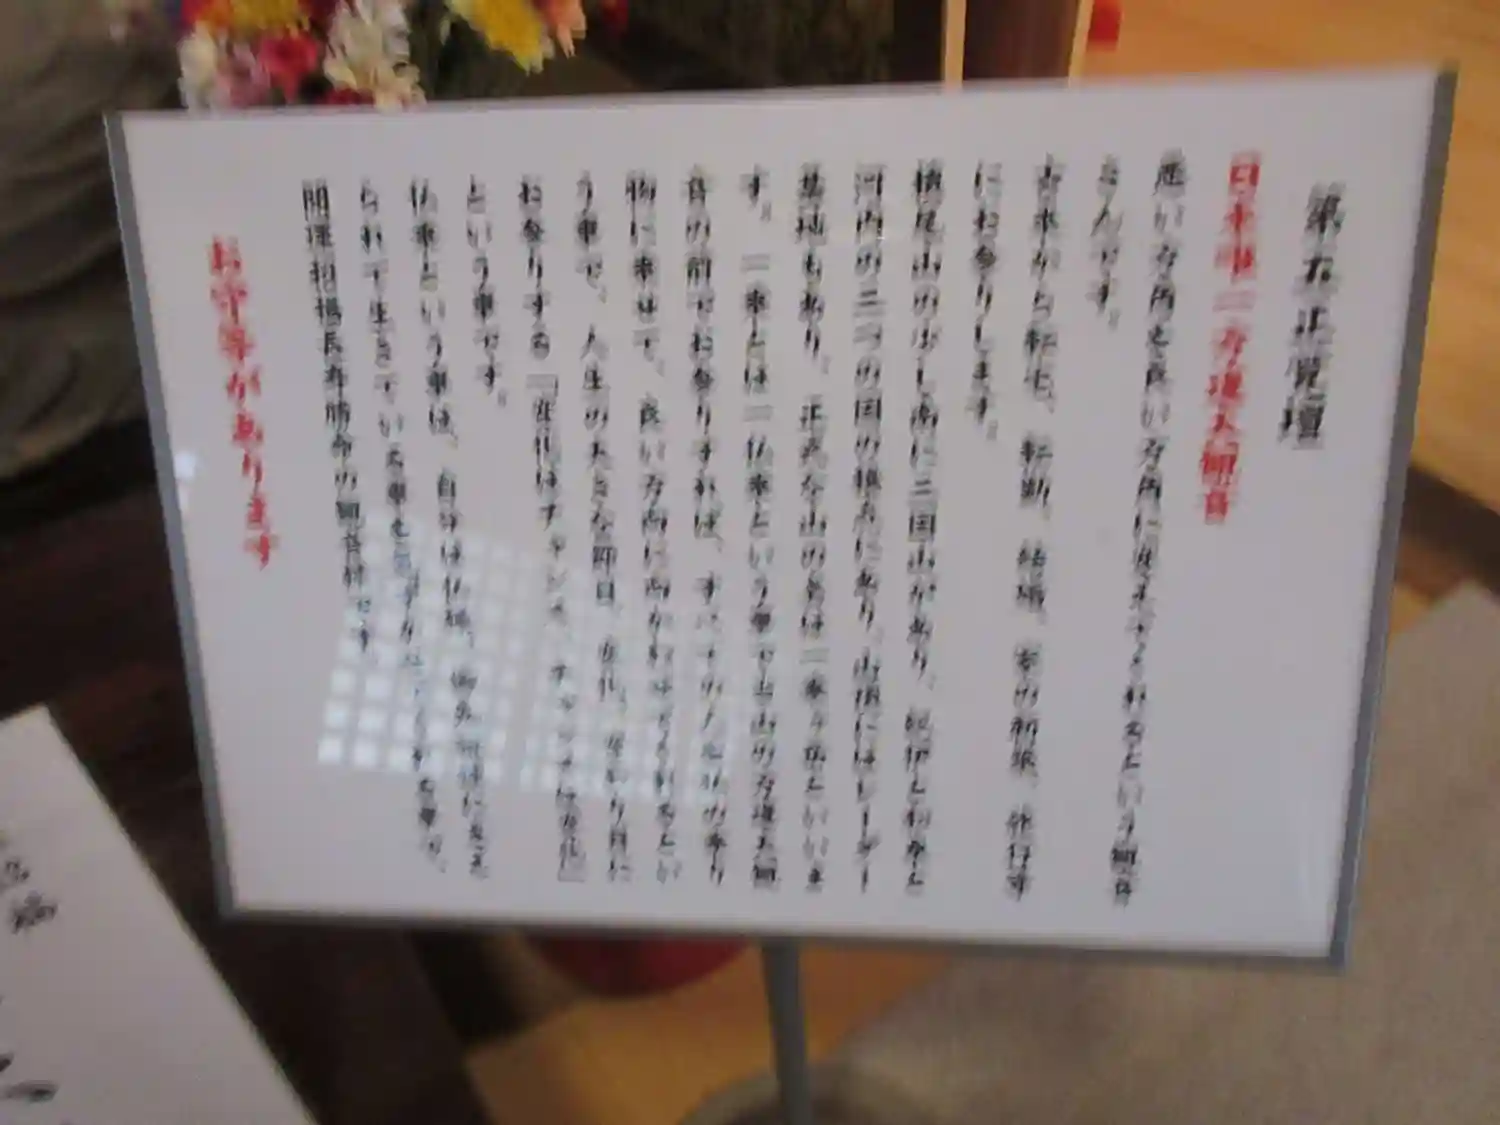 第五 正覚壇
日本唯一 方違大観音
悪い方角を良い方角に変えてくれるという観音
さんです。
古来から転宅、転勤、結婚、家の新築、旅行す
にお参りします。
槙尾山の少し南に三国山があり、紀伊と和泉と
河内の三つの国の拠点にあり、山頂にはレーダー
基地もあり、正式な山の名は一乗ヶ岳といいま
す。一乗とは一仏乗という事で当山の方違大観
音の前でお参りすれば、すべての人を仏の乗り
物に乗せて、良い方向に向かわせてくれるとい
う事で、人生の大きな節目、変化、変わり目に
お参りする「変化はチャンス、チャンスは変化」
という事です。
仏乗という事は、自分は仏様、御先祖様に支え
られて生きている事を
開運招福長寿勝命の観音様です。
お守等があります